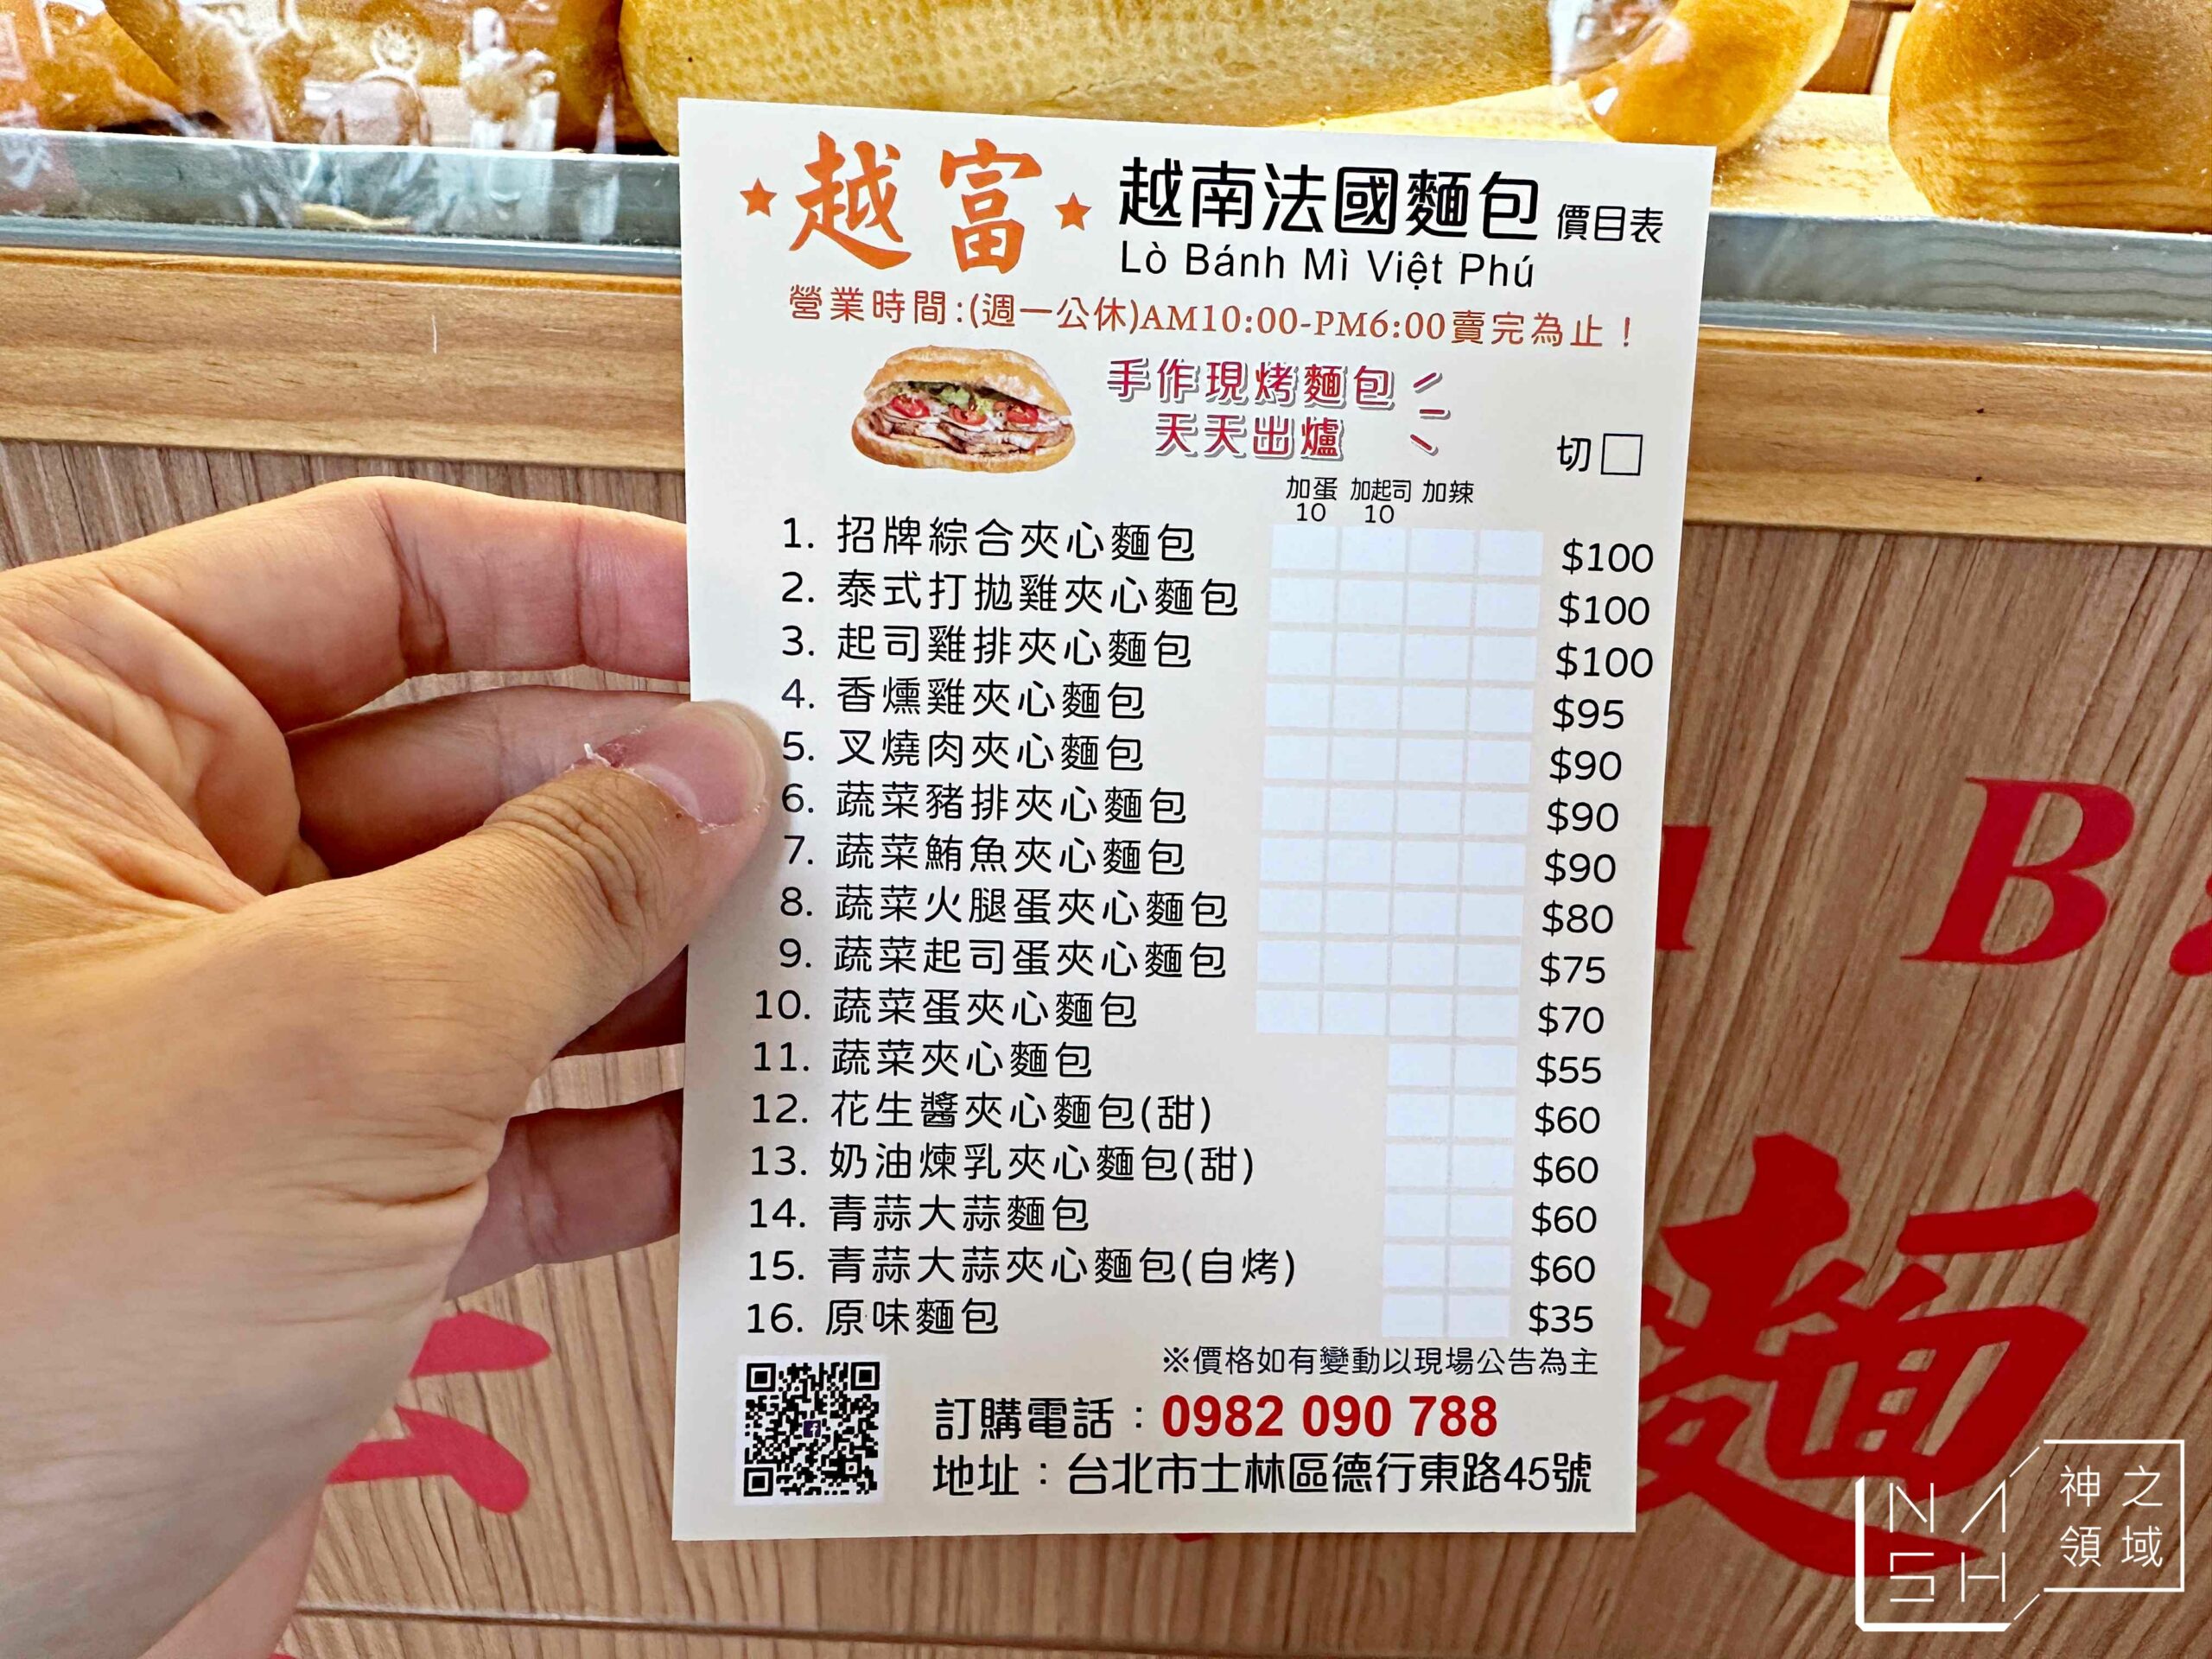 越富 越南法國麵包 價目表
Lò Bánh Mì Việt Phú
營業時間:(週一公休)AM10:00-PM6:00賣完為止！
手作現烤麵包
天天出爐
切□
加蛋 加起司 加辣
10 10
1. 招牌綜合夾心麵包 $100
2. 泰式打拋雞夾心麵包 $100
3. 起司雞排夾心麵包 $100
4. 香燻雞夾心麵包 $95
5. 叉燒肉夾心麵包 $90
6. 蔬菜豬排夾心麵包 $90
7. 蔬菜鮪魚夾心麵包 $90
8. 蔬菜火腿蛋夾心麵包 $80
9. 蔬菜起司蛋夾心麵包 $75
10. 蔬菜蛋夾心麵包 $70
11. 蔬菜夾心麵包 $55
12. 花生醬夾心麵包(甜) $60
13. 奶油煉乳夾心麵包(甜) $60
14. 青蒜大蒜麵包 $60
15. 青蒜大蒜夾心麵包(自烤) $60
16. 原味麵包 $35
※價格如有變動以現場公告為主
訂購電話：0982 090 788
地址：台北市士林區德行東路45號
B
麵
NASH
神之
領域